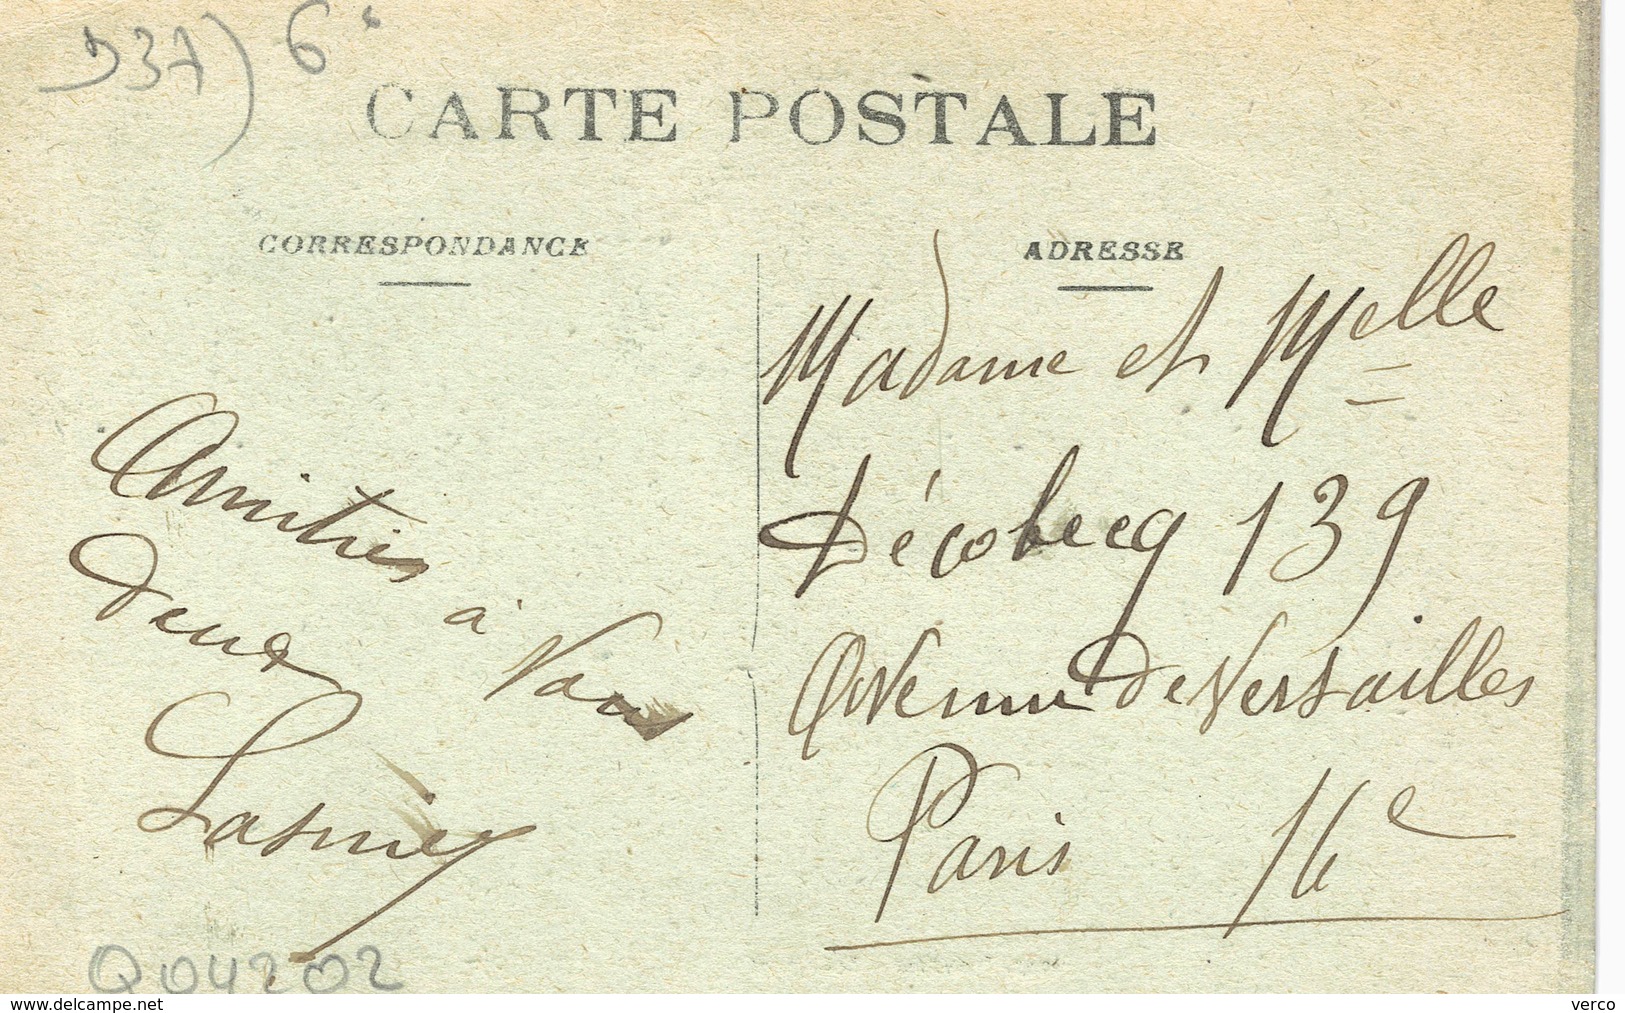 937) 6
CARTE POSTALE
CORRESPONDANCE
ADRESSE
Amitiés
à Vous
deux
Madame et Melle
Décobecq 139
Avenue de Versailles
Paris 16e
Q04202
www.delcampe.net
verco